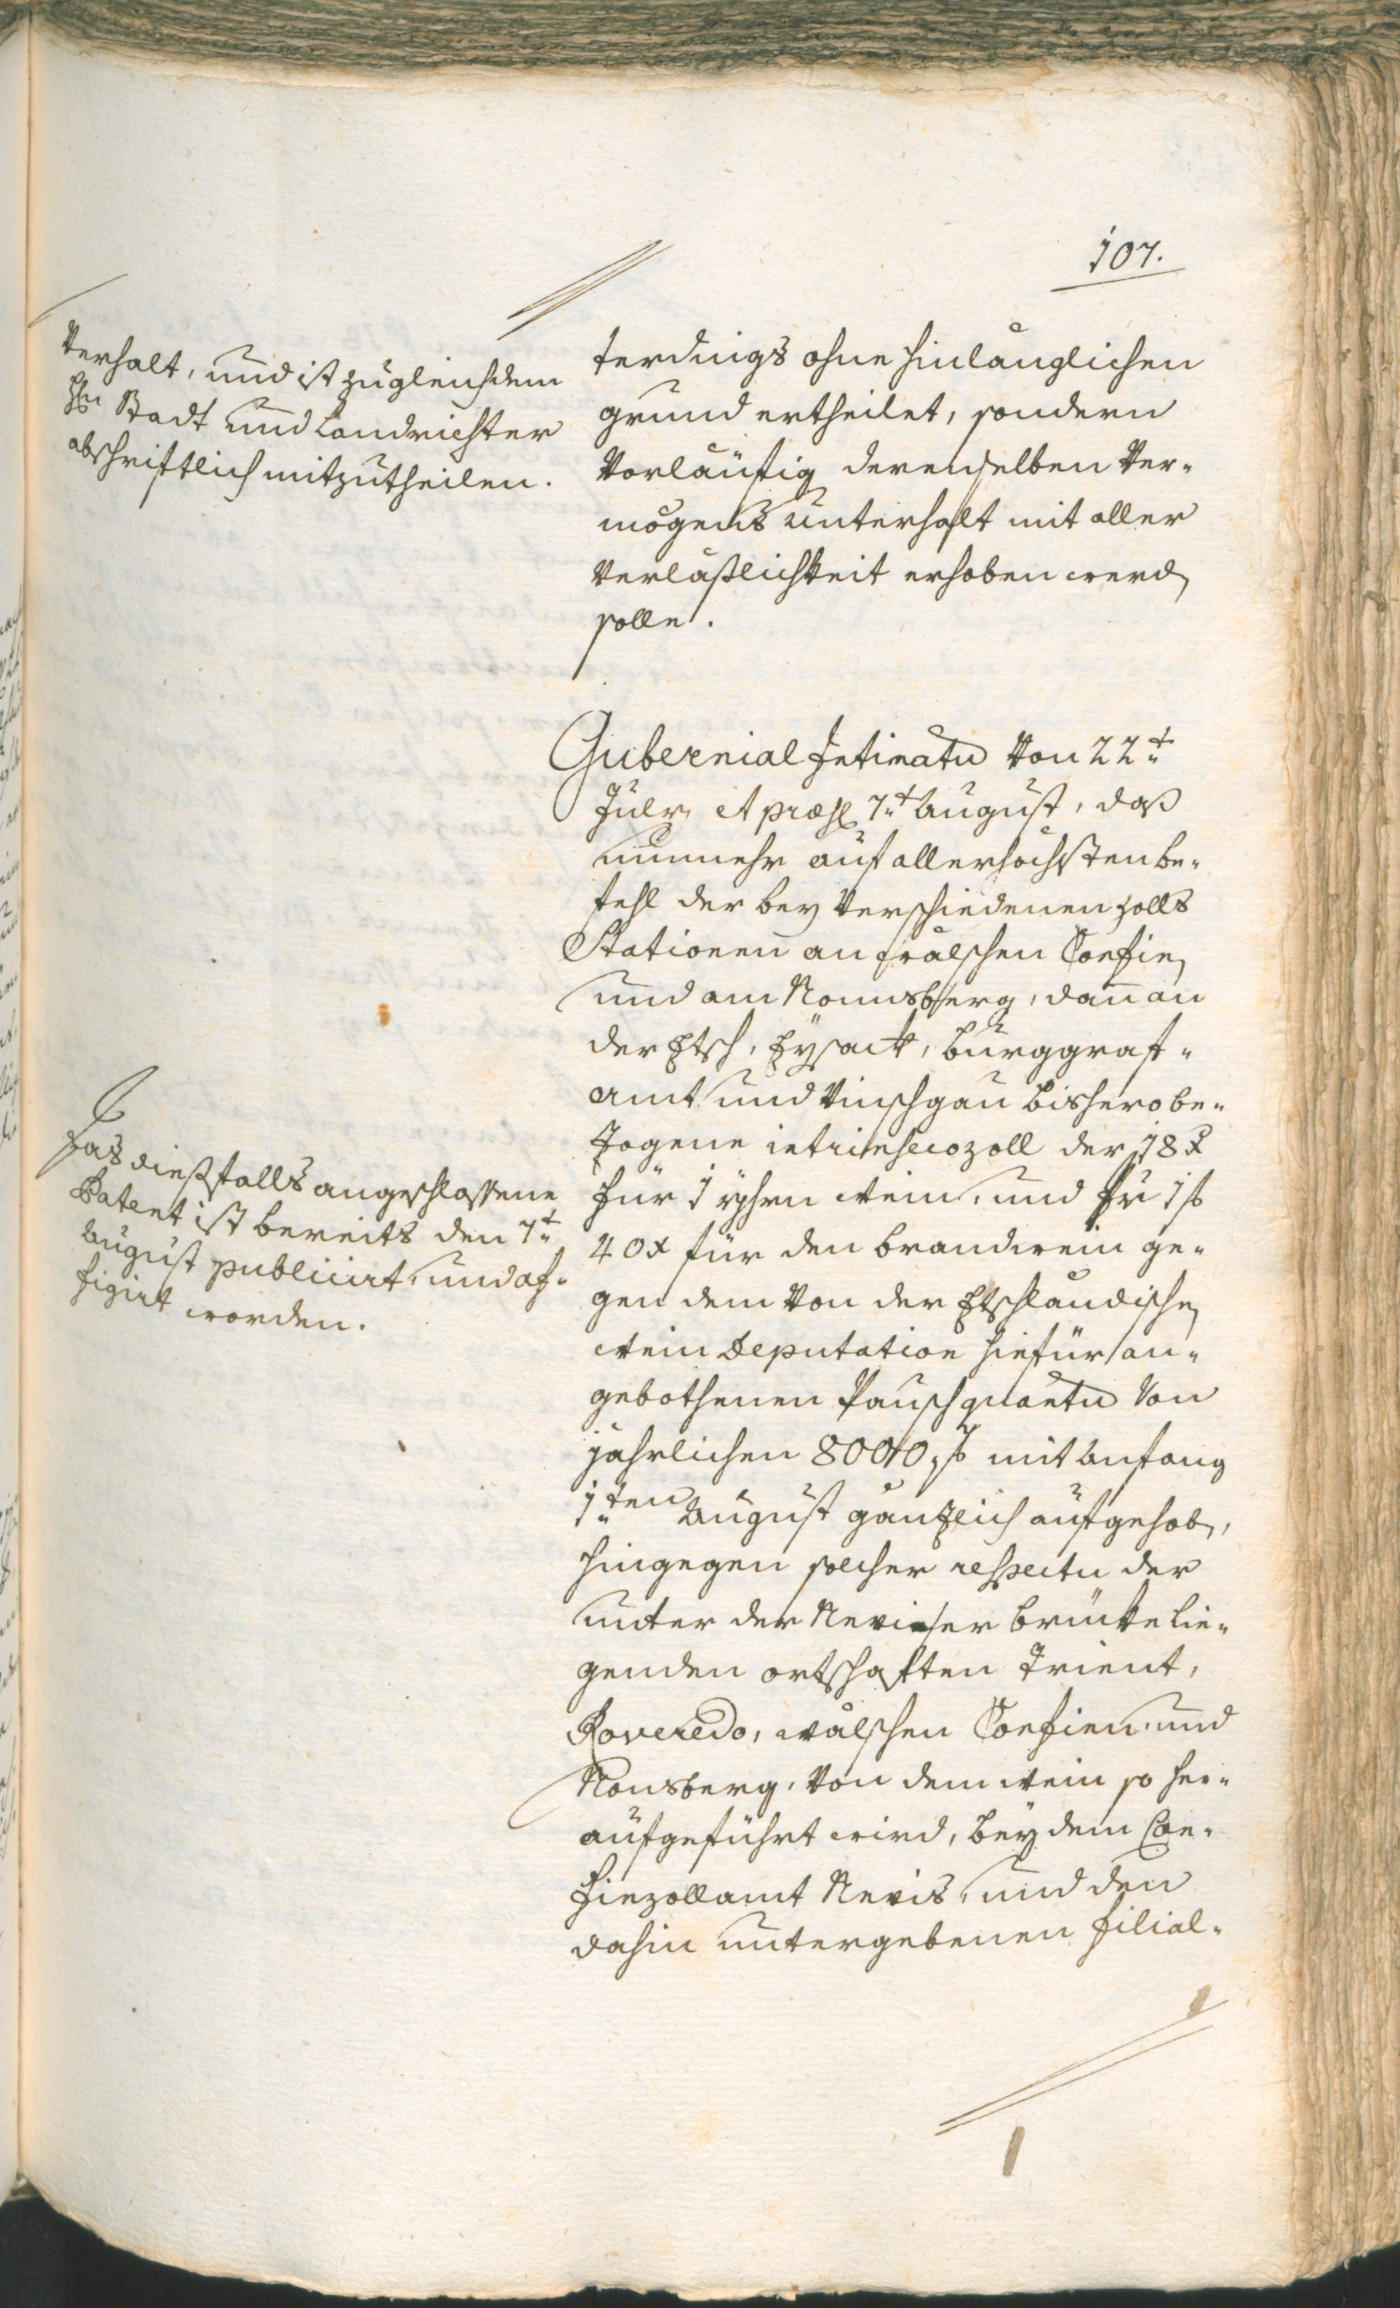 107.
Verhalt, und ist zugleich dem
Hn Stadt und Landrichter
abschriftlich mitzutheilen.
terdings ohne hinlänglichen
grund ertheilet, sondern
Vorläufig derenselben Ver-
mögens unterhalt mit aller
Verläßlichkeit erhoben werd
solle.
Gubernial Intimatu Von 22t
July et præs 7t August, daß
nunmehr auf allerhöchsten be-
fehl der bey Verschiedenen zolls
Stationen an wälschen Confin
und am Nonnsberg, dann an
der Etsch, Eysack, burggraf-
amt und Vinschgau bishero be-
zogene intrinsecozoll der 18 x
für 1 yhrn wein, und 1 f
40 x für den brandwein ge-
gen dem Von der Etschländische
wein Deputation hiefür an-
gebothenen Pauschquantu Von
jährlichen 8000 f mit Anfang
1ten August gänzlich aufgehob,
hingegen solcher respectu der
unter der Neviser brücke lie-
genden ortschaften Trient,
Roveredo, wälschen Confinen und
Nonsberg, Von dem wein so her-
aufgeführt wird, bey dem Con-
finzollamt Nevis, und den
dahin untergebenen filial-
Das diesfalls angeschlossene
Patent ist bereits den 7t
August publicirt und af-
figirt worden.